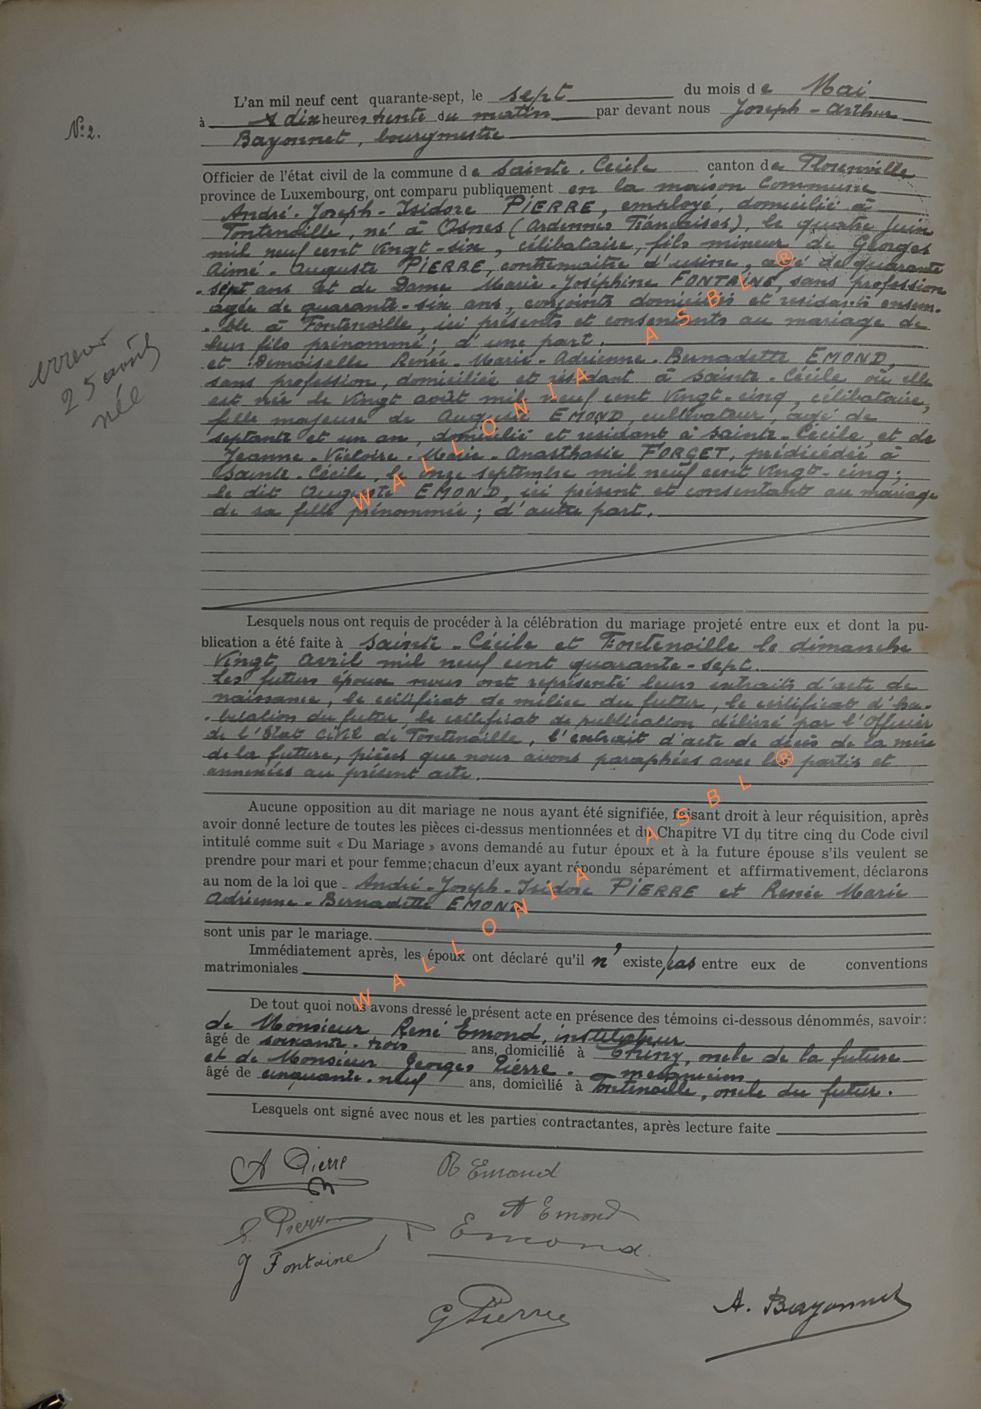 L'an mil neuf cent quarante-sept, le sept du mois de Mai
à dix heures trente du matin par devant nous Joseph-Arthur
N° 2.
Bayonnet, bourgmestre
Officier de l'état civil de la commune de Sainte-Cécile canton de Florenville
province de Luxembourg, ont comparu publiquement en la maison Commune
André-Joseph-Isidore PIERRE, employé, domicilié à
Fontenoille, né à Osnes (Ardennes Françaises), le quatre Juin
mil neuf cent Vingt-six, célibataire, fils mineur de Georges
Aimé-Auguste PIERRE, contremaître d'usine, agé de quarante
-sept ans et de Dame Marie-Joséphine FONTAINE, sans profession
agée de quarante-six ans, conjoints domiciliés et résidants ensem-
-ble à Fontenoille, ici présents et consentants au mariage de
leur fils prénommé; d'une part.
et Demoiselle Renée-Marie-Adrienne-Bernadette EMOND,
sans profession, domiciliée et résidant à Sainte-Cécile où elle
est née le Vingt août mil neuf cent Vingt-cinq, célibataire,
erreur
25 avril
née
fille majeure de Auguste EMOND, cultivateur, agé de
septante et un ans, domicilié et résidant à Sainte-Cécile, et de
Jeanne-Victoire-Marie-Anasthasie FORGET, prédécédée à
Sainte-Cécile, le onze septembre mil neuf cent Vingt-cinq;
le dit Auguste EMOND, ici présent et consentant au mariage
de sa fille prénommée; d'autre part.
Lesquels nous ont requis de procéder à la célébration du mariage projeté entre eux et dont la pu-
blication a été faite à Sainte-Cécile et Fontenoille le dimanche
Vingt Avril mil neuf cent quarante-sept.
Les futurs époux nous ont représenté leurs extraits d'acte de
naissance, le certificat de milice du futur, le certificat d'ha-
-bitation du futur, le certificat de publication délivré par l'Officier
de l'Etat Civil de Fontenoille, l'extrait d'acte de décès de la mère
de la future, pièces que nous avons paraphées avec les partis et
annexées au présent acte.
Aucune opposition au dit mariage ne nous ayant été signifiée, faisant droit à leur réquisition, après
avoir donné lecture de toutes les pièces ci-dessus mentionnées et du Chapitre VI du titre cinq du Code civil
intitulé comme suit « Du Mariage » avons demandé au futur époux et à la future épouse s'ils veulent se
prendre pour mari et pour femme; chacun d'eux ayant répondu séparément et affirmativement, déclarons
au nom de la loi que André-Joseph-Isidore PIERRE et Renée Marie
Adrienne-Bernadette EMOND
sont unis par le mariage.
Immédiatement après, les époux ont déclaré qu'il n'existe pas entre eux de conventions
matrimoniales
De tout quoi nous avons dressé le présent acte en présence des témoins ci-dessous dénommés, savoir:
de Monsieur René Emond, instituteur
âgé de soixante-trois ans, domicilié à Thuny, oncle de la future
et de Monsieur Georges Pierre-mécanicien
âgé de cinquante-neuf ans, domicilié à Fontenoille, oncle du futur.
Lesquels ont signé avec nous et les parties contractantes, après lecture faite
A Pierre
R Emond
A Emond
Pierre
Emond
J Fontaine
G Pierre
A. Bayonnet
WALLONIA ASBL ®
WALLONIA ASBL ®